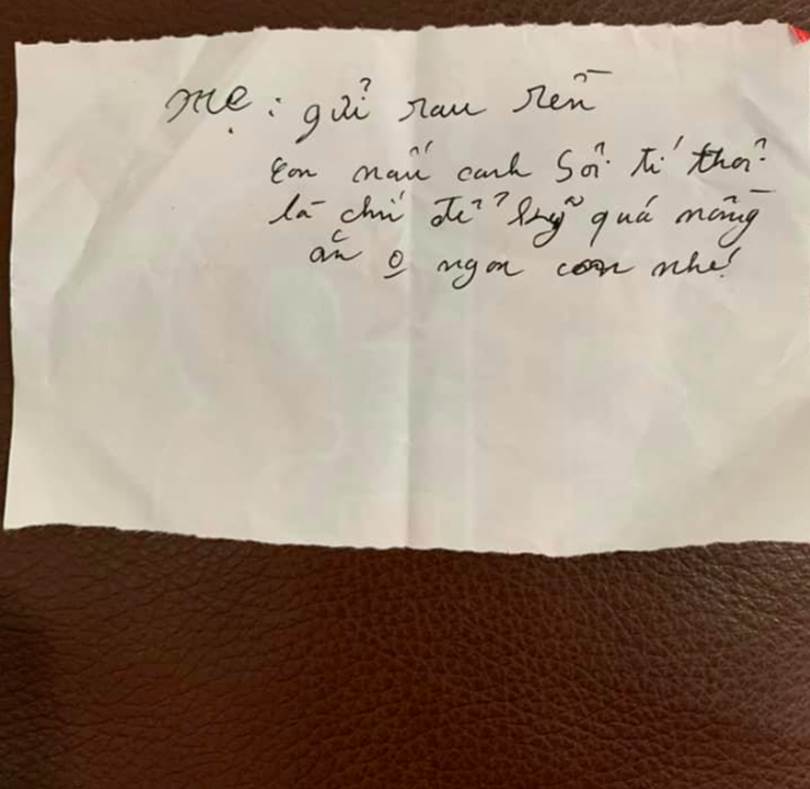 mẹ: gửi rau rền
con nấu canh sôi tí thôi
là chín để kỹ quá nồng
ăn o ngon con nhé!